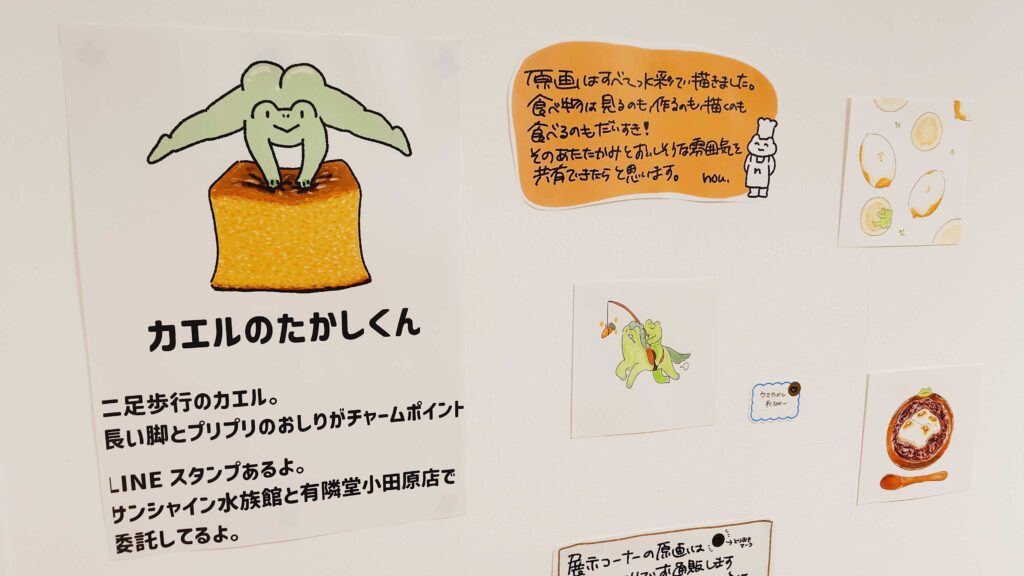 カエルのたかしくん
二足歩行のカエル。
長い脚とプリプリのおしりがチャームポイント
LINE スタンプあるよ。
サンシャイン水族館と有隣堂小田原店で
委託してるよ。
原画はすべて水彩で描きました。
食べ物は見るのも作るのも描くのも
食べるのもだいすき!
そのあたたかみとおいしそうな雰囲気を
共有できたらと思います。 nou.
n
ウマたかし
¥1,500-
展示コーナーの原画は
→とりおきマーク
通販します